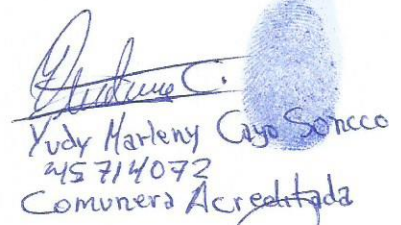 Yudy Marleny Cayo Soncco
45714072
Comunera Acreditada